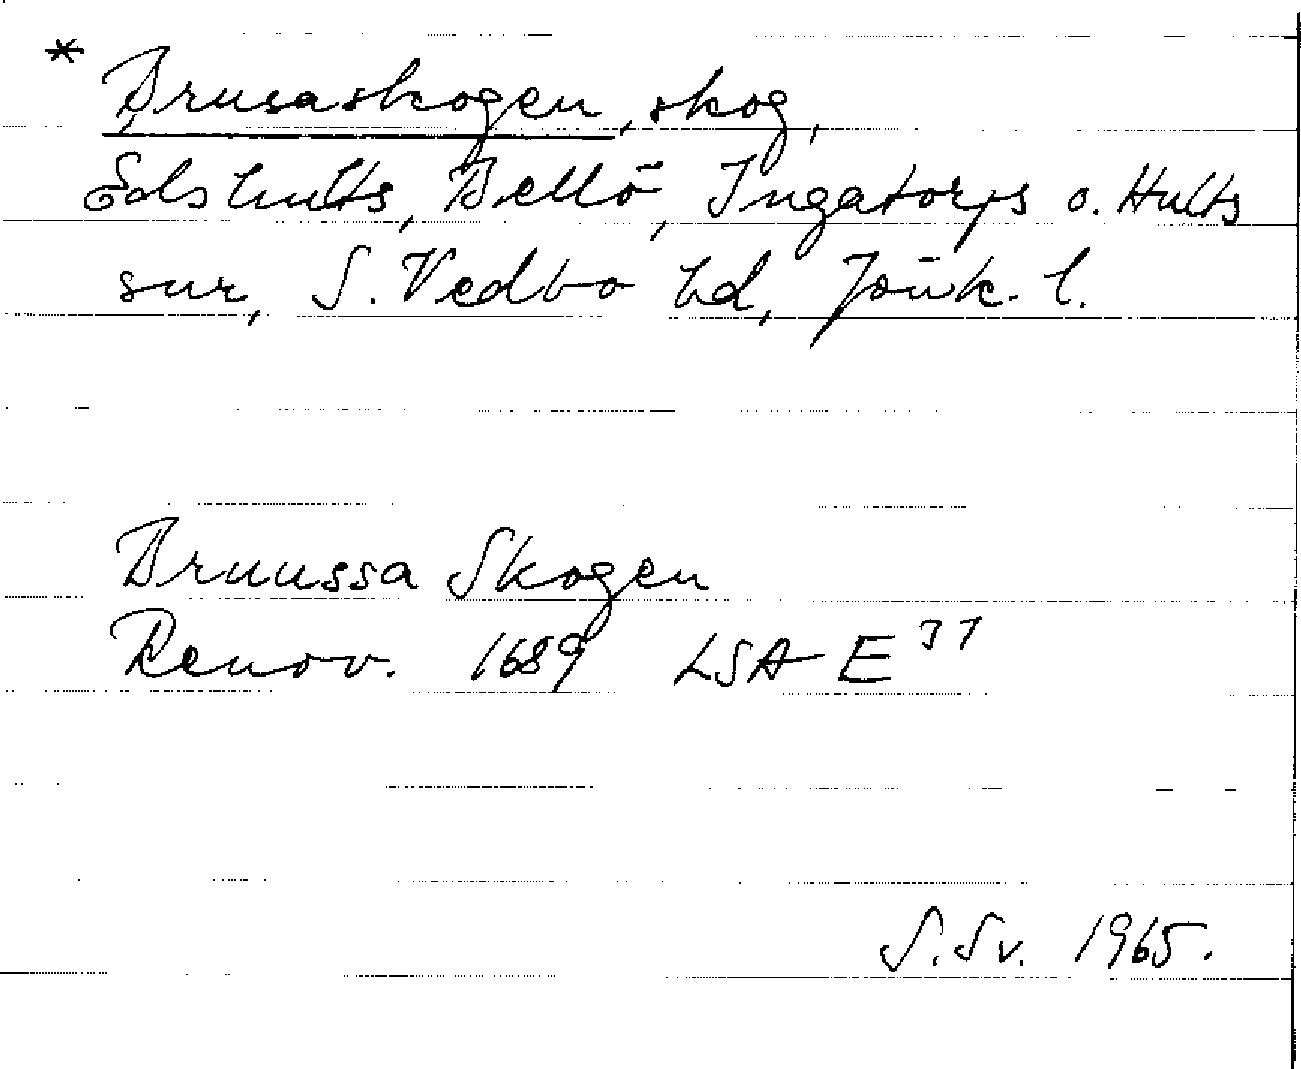 * Brusaskogen, skog,
Edshults, Bellö, Ingatorps o. Hults
snr, S. Vedbo hd, Jönk. l.
Bruussa Skogen
Renov. 1689 LSA E
S. Sv. 1965.